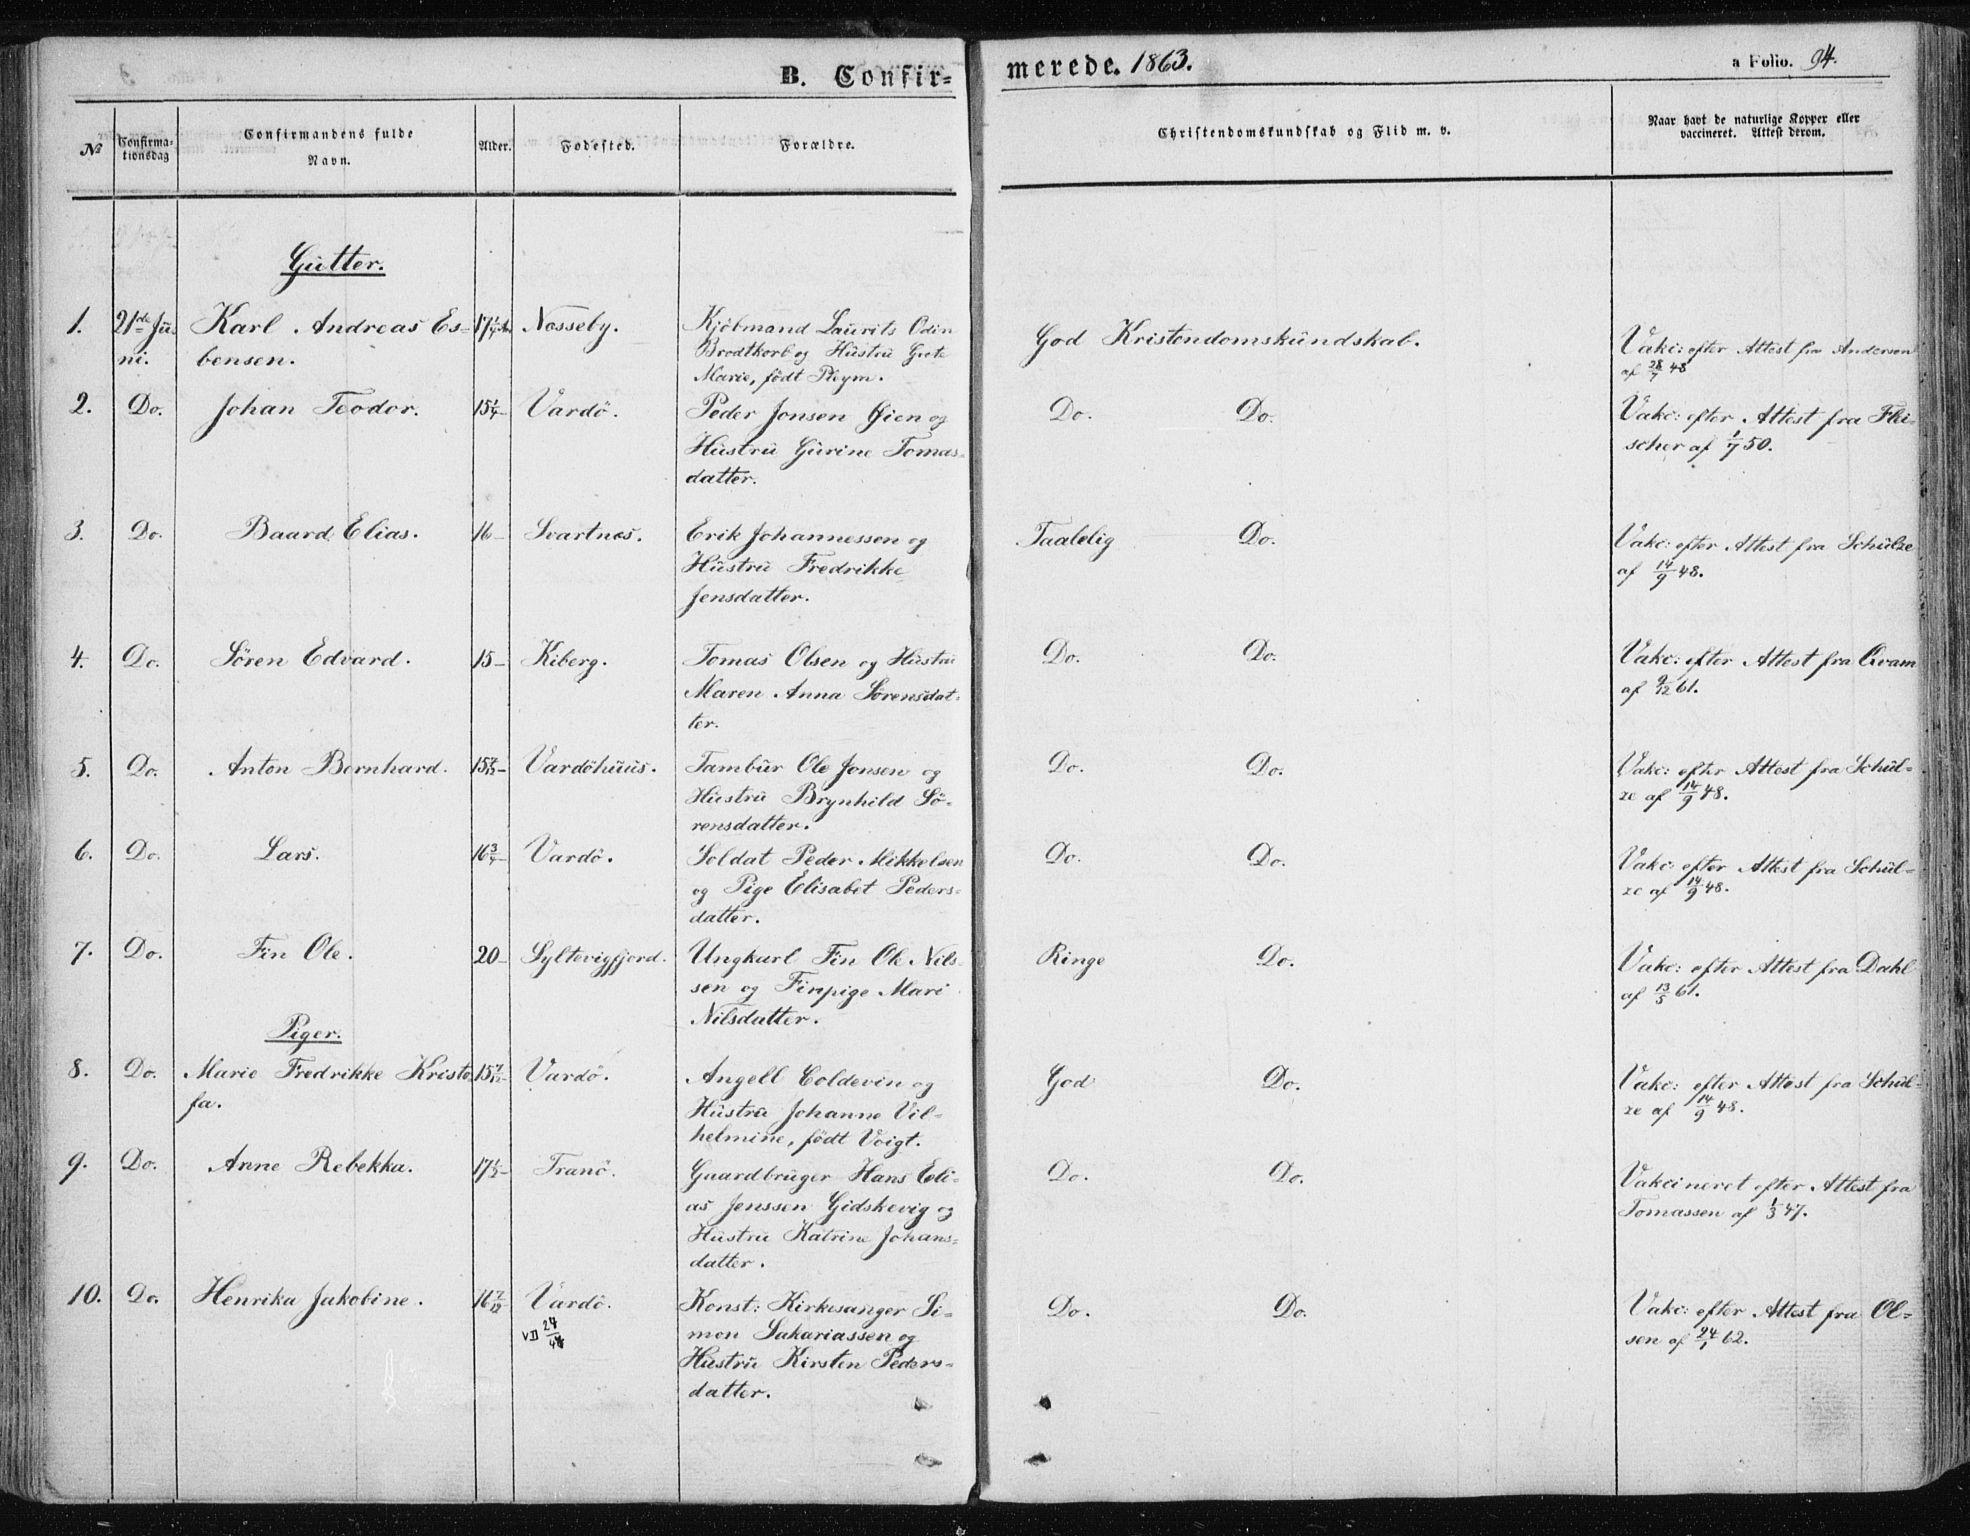 B. Confir-
merede. 1863.
a Folio. 94.
No
Confirma-
tionsdag
Confirmandens fulde
Navn.
Alder.
Fødested.
Forældre.
Christendomskundskab og Flid m. v.
Naar havt de naturlige Kopper eller
vaccineret. Attest derom.
Gutter.
1. 21de Ju- Karl Andreas Es- Nesseby. Kjöbmand Laurits Odin God Kristendomskundskab. Vakc: efter Attest fra Andersen
ni. bensen. Brodtkorb og Hustru Grete af 28/7 48
Marie, födt Rhym.
2. Do. Johan Teodor. 15 1/4 - Vardö. Peder Jonsen Öien og Do. Do. Vakc: efter Attest fra Flei-
Hustru Gurine Tomas- scher af 1/7 50.
datter.
3. Do. Baard Elias. 16 - Svartnes. Erik Johannessen og Taalelig Do. Vakc: efter Attest fra Schulze
Hustru Fredrikke af 14/9 48.
Jensdatter.
4. Do. Sören Edvard. 15 - Kiberg. Tomas Olsen og Hustru Do. Do. Vakc: efter Attest fra Qvam
Maren Anna Sörensdat- af 9/12 61.
ter.
5. Do. Anton Bernhard. Vardöhuus. Tambur Ole Jonsen og Do. Do. Vakc: efter Attest fra Schul-
Hustru Brynhild Sö- ze af 14/9 48.
rensdatter.
6. Do. Lars. 16 3/4 - Vardö. Soldat Peder Mikkelsen Do. Do. Vakc: efter Attest fra Schul-
og Pige Elisabet Peders- ze af 14/9 48.
datter.
7. Do. Fin Ole. 20 - Syltevigfjord. Ungkarl Fin Ole Nils- Ringe Do. Vakc: efter Attest fra Dahl
sen og Finpige Mari af 13/5 61.
Nilsdatter.
Piger.
8. Do. Marie Fredrikke Kristo- 15 7/12 - Vardö. Angell Coldevin og God Do. Vakc: efter Attest fra Schul-
fa. Hustru Johanne Vil- ze af 14/9 48.
helmine, födt Voigt.
9. Do. Anne Rebekka. 17 1/2 - Tranö. Gaardbruger Hans Eli- Do. Do. Vakcineret efter Attest fra
as Jenssen Gidskevig og Tomassen af 1/3 47.
Hustru Katrine Johans-
datter.
10. Do. Henrika Jakobine. 16 7/12 Vardö. Konst: Kirkesanger Si- Do. Do. Vakc: efter Attest fra Ol-
VII 24/47 mon Sakariassen og sen af 24/1 62.
Hustru Kirsten Peders-
datter.